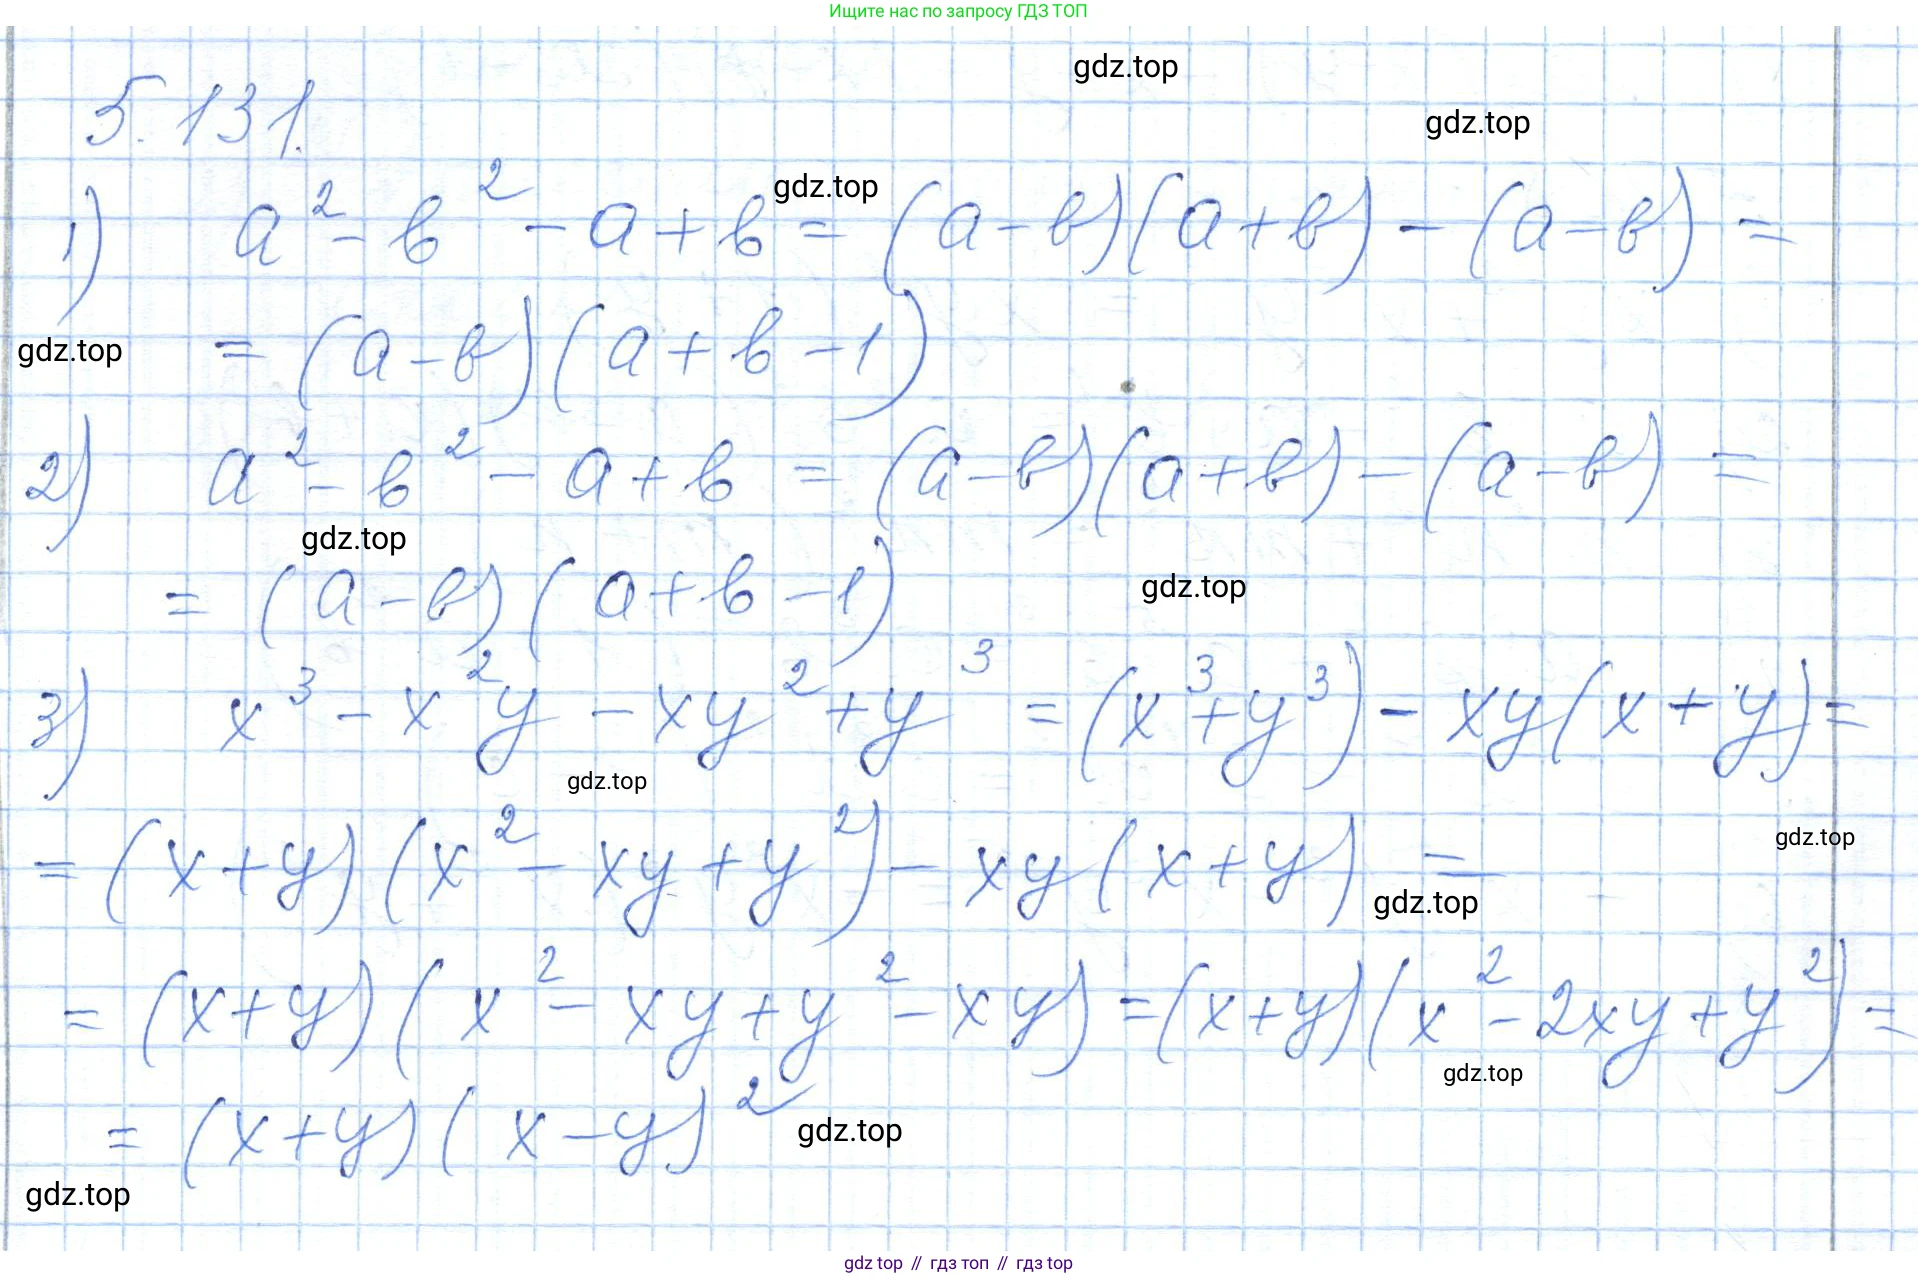 Ищите нас по запросу ГДЗ ТОП
gdz.top
5.131.
gdz.top
1) a² - b² - a + b = (a - b)(a + b) - (a - b) =
gdz.top
= (a - b)(a + b - 1)
gdz.top
2) a² - b² - a + b = (a - b)(a + b) - (a - b) =
gdz.top
= (a - b)(a + b - 1)
gdz.top
3) x³ - x²y - xy² + y³ = (x³ + y³) - xy(x + y) =
gdz.top
gdz.top
= (x + y)(x² - xy + y²) - xy(x + y) =
gdz.top
= (x + y)(x² - xy + y² - xy) = (x + y)(x² - 2xy + y²) =
gdz.top
= (x + y)(x - y)²
gdz.top
gdz.top
gdz top // гдз топ // gdz top